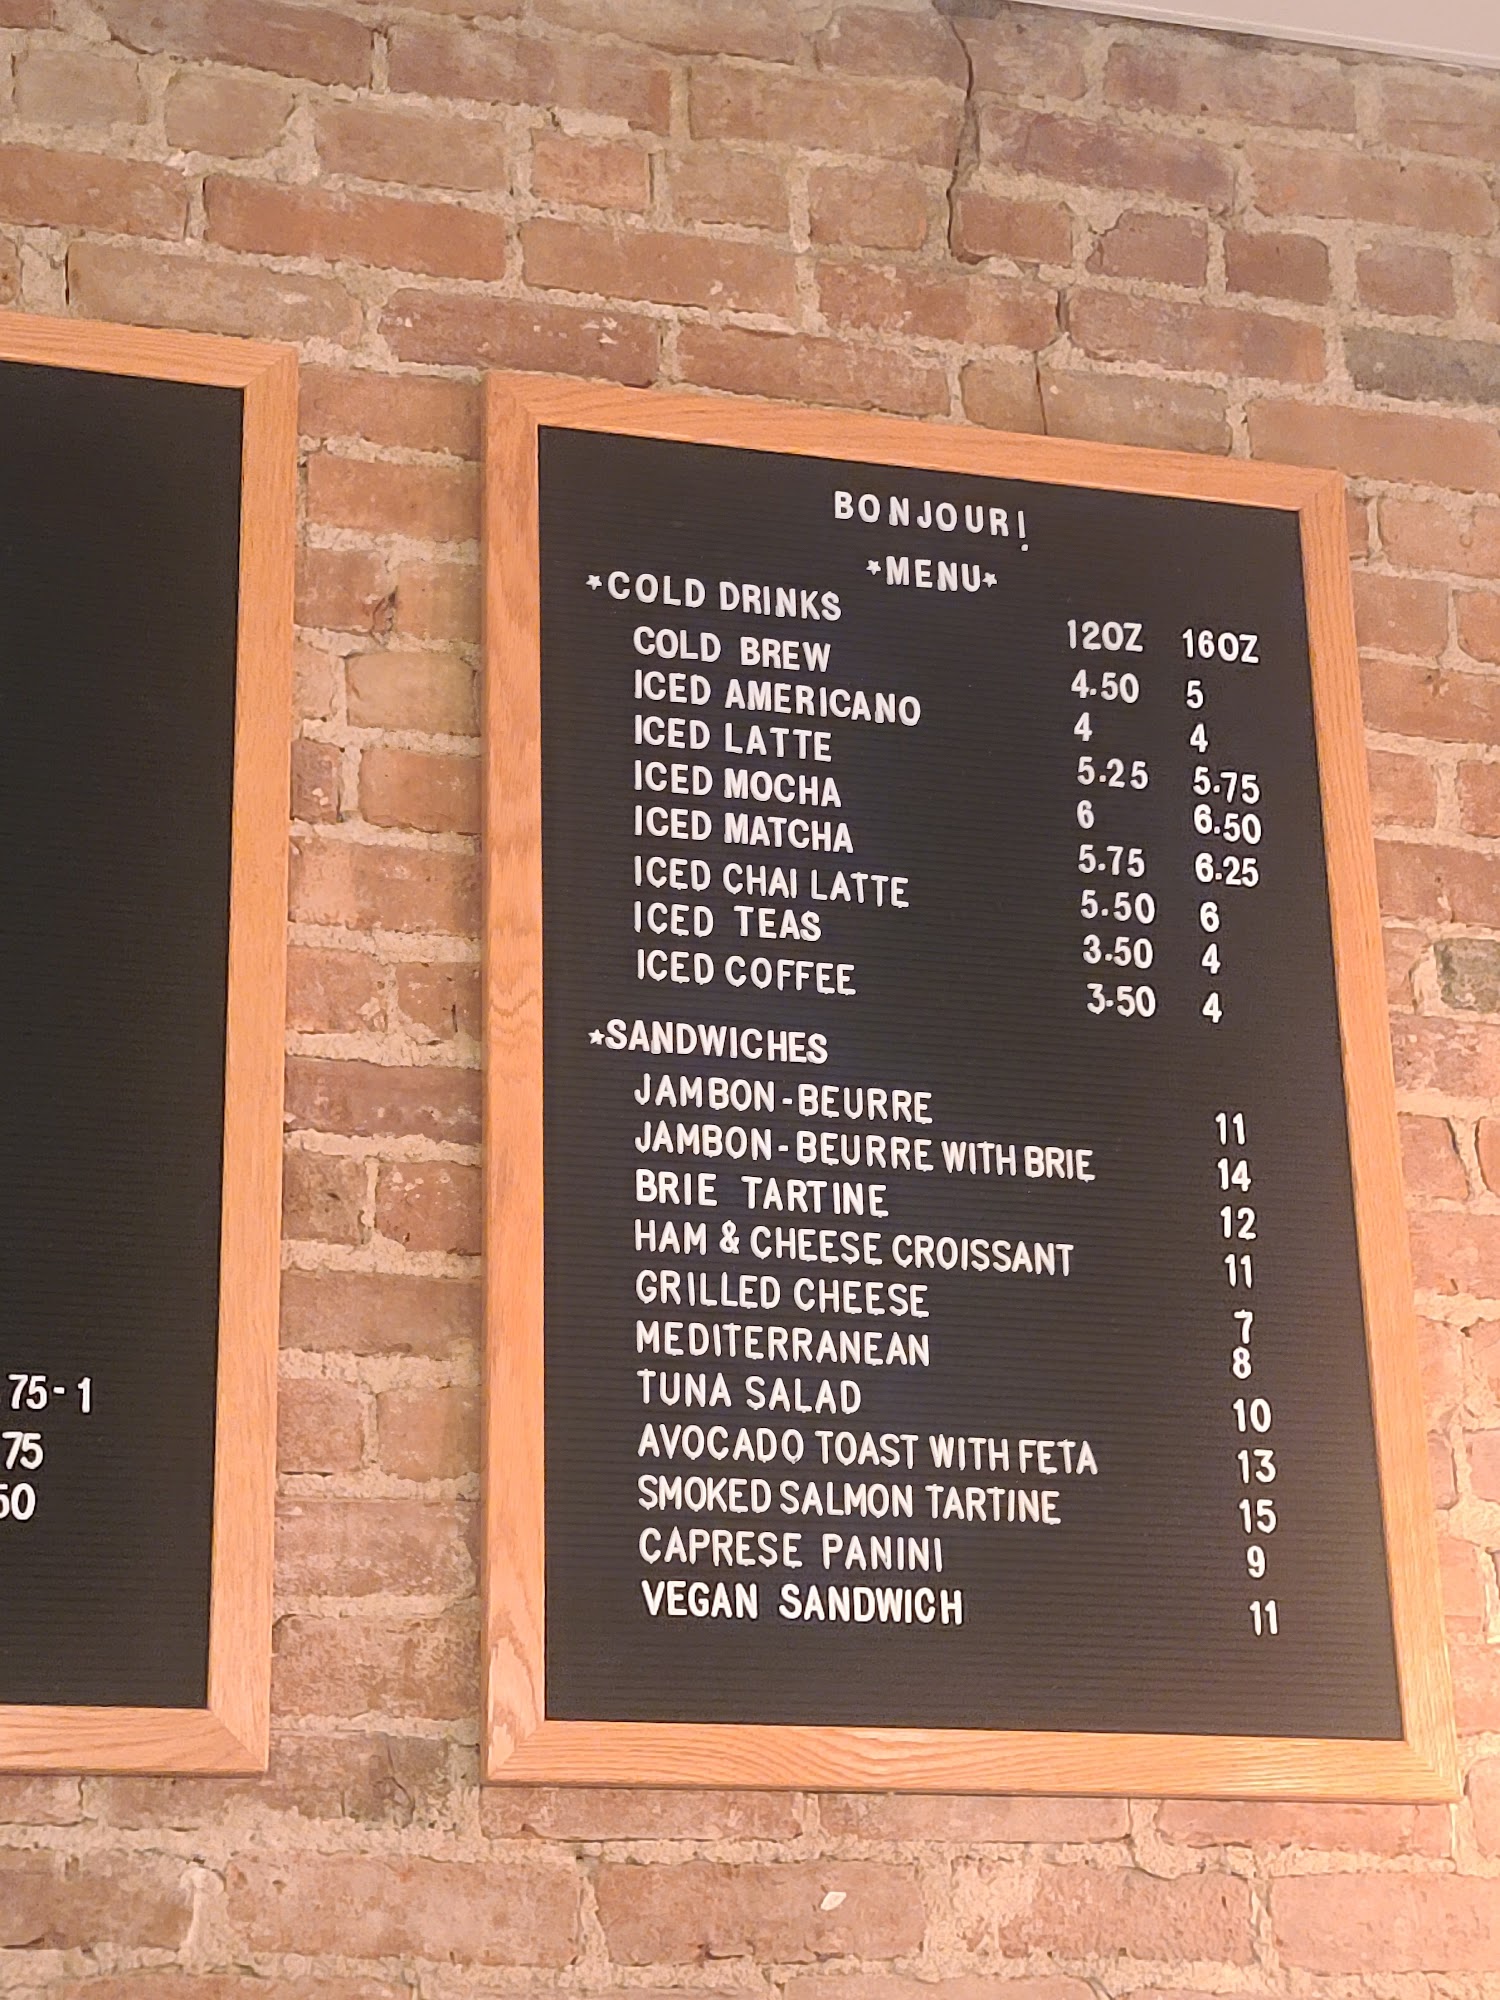 BONJOUR!
*MENU*
*COLD DRINKS 12OZ 16OZ
COLD BREW 4.50 5
ICED AMERICANO 4 4
ICED LATTE 5.25 5.75
ICED MOCHA 6 6.50
ICED MATCHA 5.75 6.25
ICED CHAI LATTE 5.50 6
ICED TEAS 3.50 4
ICED COFFEE 3.50 4
*SANDWICHES
JAMBON-BEURRE 11
JAMBON-BEURRE WITH BRIE 14
BRIE TARTINE 12
HAM & CHEESE CROISSANT 11
GRILLED CHEESE 7
MEDITERRANEAN 8
TUNA SALAD 10
AVOCADO TOAST WITH FETA 13
SMOKED SALMON TARTINE 15
CAPRESE PANINI 9
VEGAN SANDWICH 11
75-1
75
50